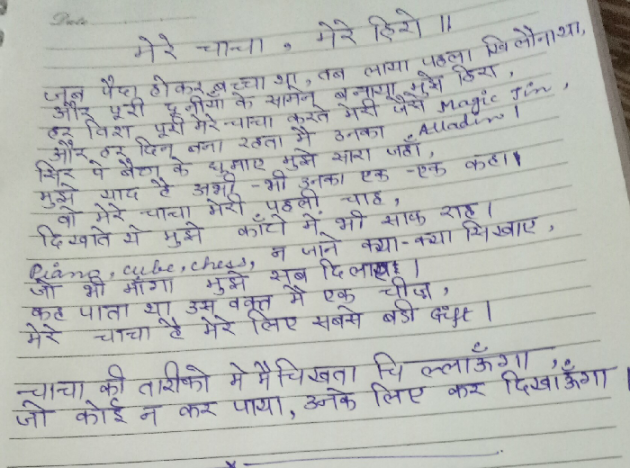 Date
मेरे चाचा, मेरे हिरो ॥
जब पैदा होकर बच्चा था, तब लाया पहला खिलौना था,
और पूरी दुनीया के सामने बनाया मुझे हिरा,
हर विश पूरी मेरे चाचा करते मेरी जैसे Magic Jin,
और हर दिन बना रहता मै उनका Alladin।
सिर पे बैठा के घुमाए मुझे सारा जहाँ,
मुझे याद है अभी-भी उनका एक-एक कहा।
वो मेरे चाचा मेरी पहली चाह,
दिखाते थे मुझे काँटो में भी साफ राह।
Piano, cube, chess, न जाने क्या-क्या सिखाए,
जो भी माँगा मुझे सब दिलाए।
कह पाता था उस वक्त मै एक चीज़,
मेरे चाचा है मेरे लिए सबसे बडी Gift।
चाचा की तारीफो मे मै चिखता चिल्लाऊँगा,
जो कोई न कर पाया, उनके लिए कर दिखाऊँगा।